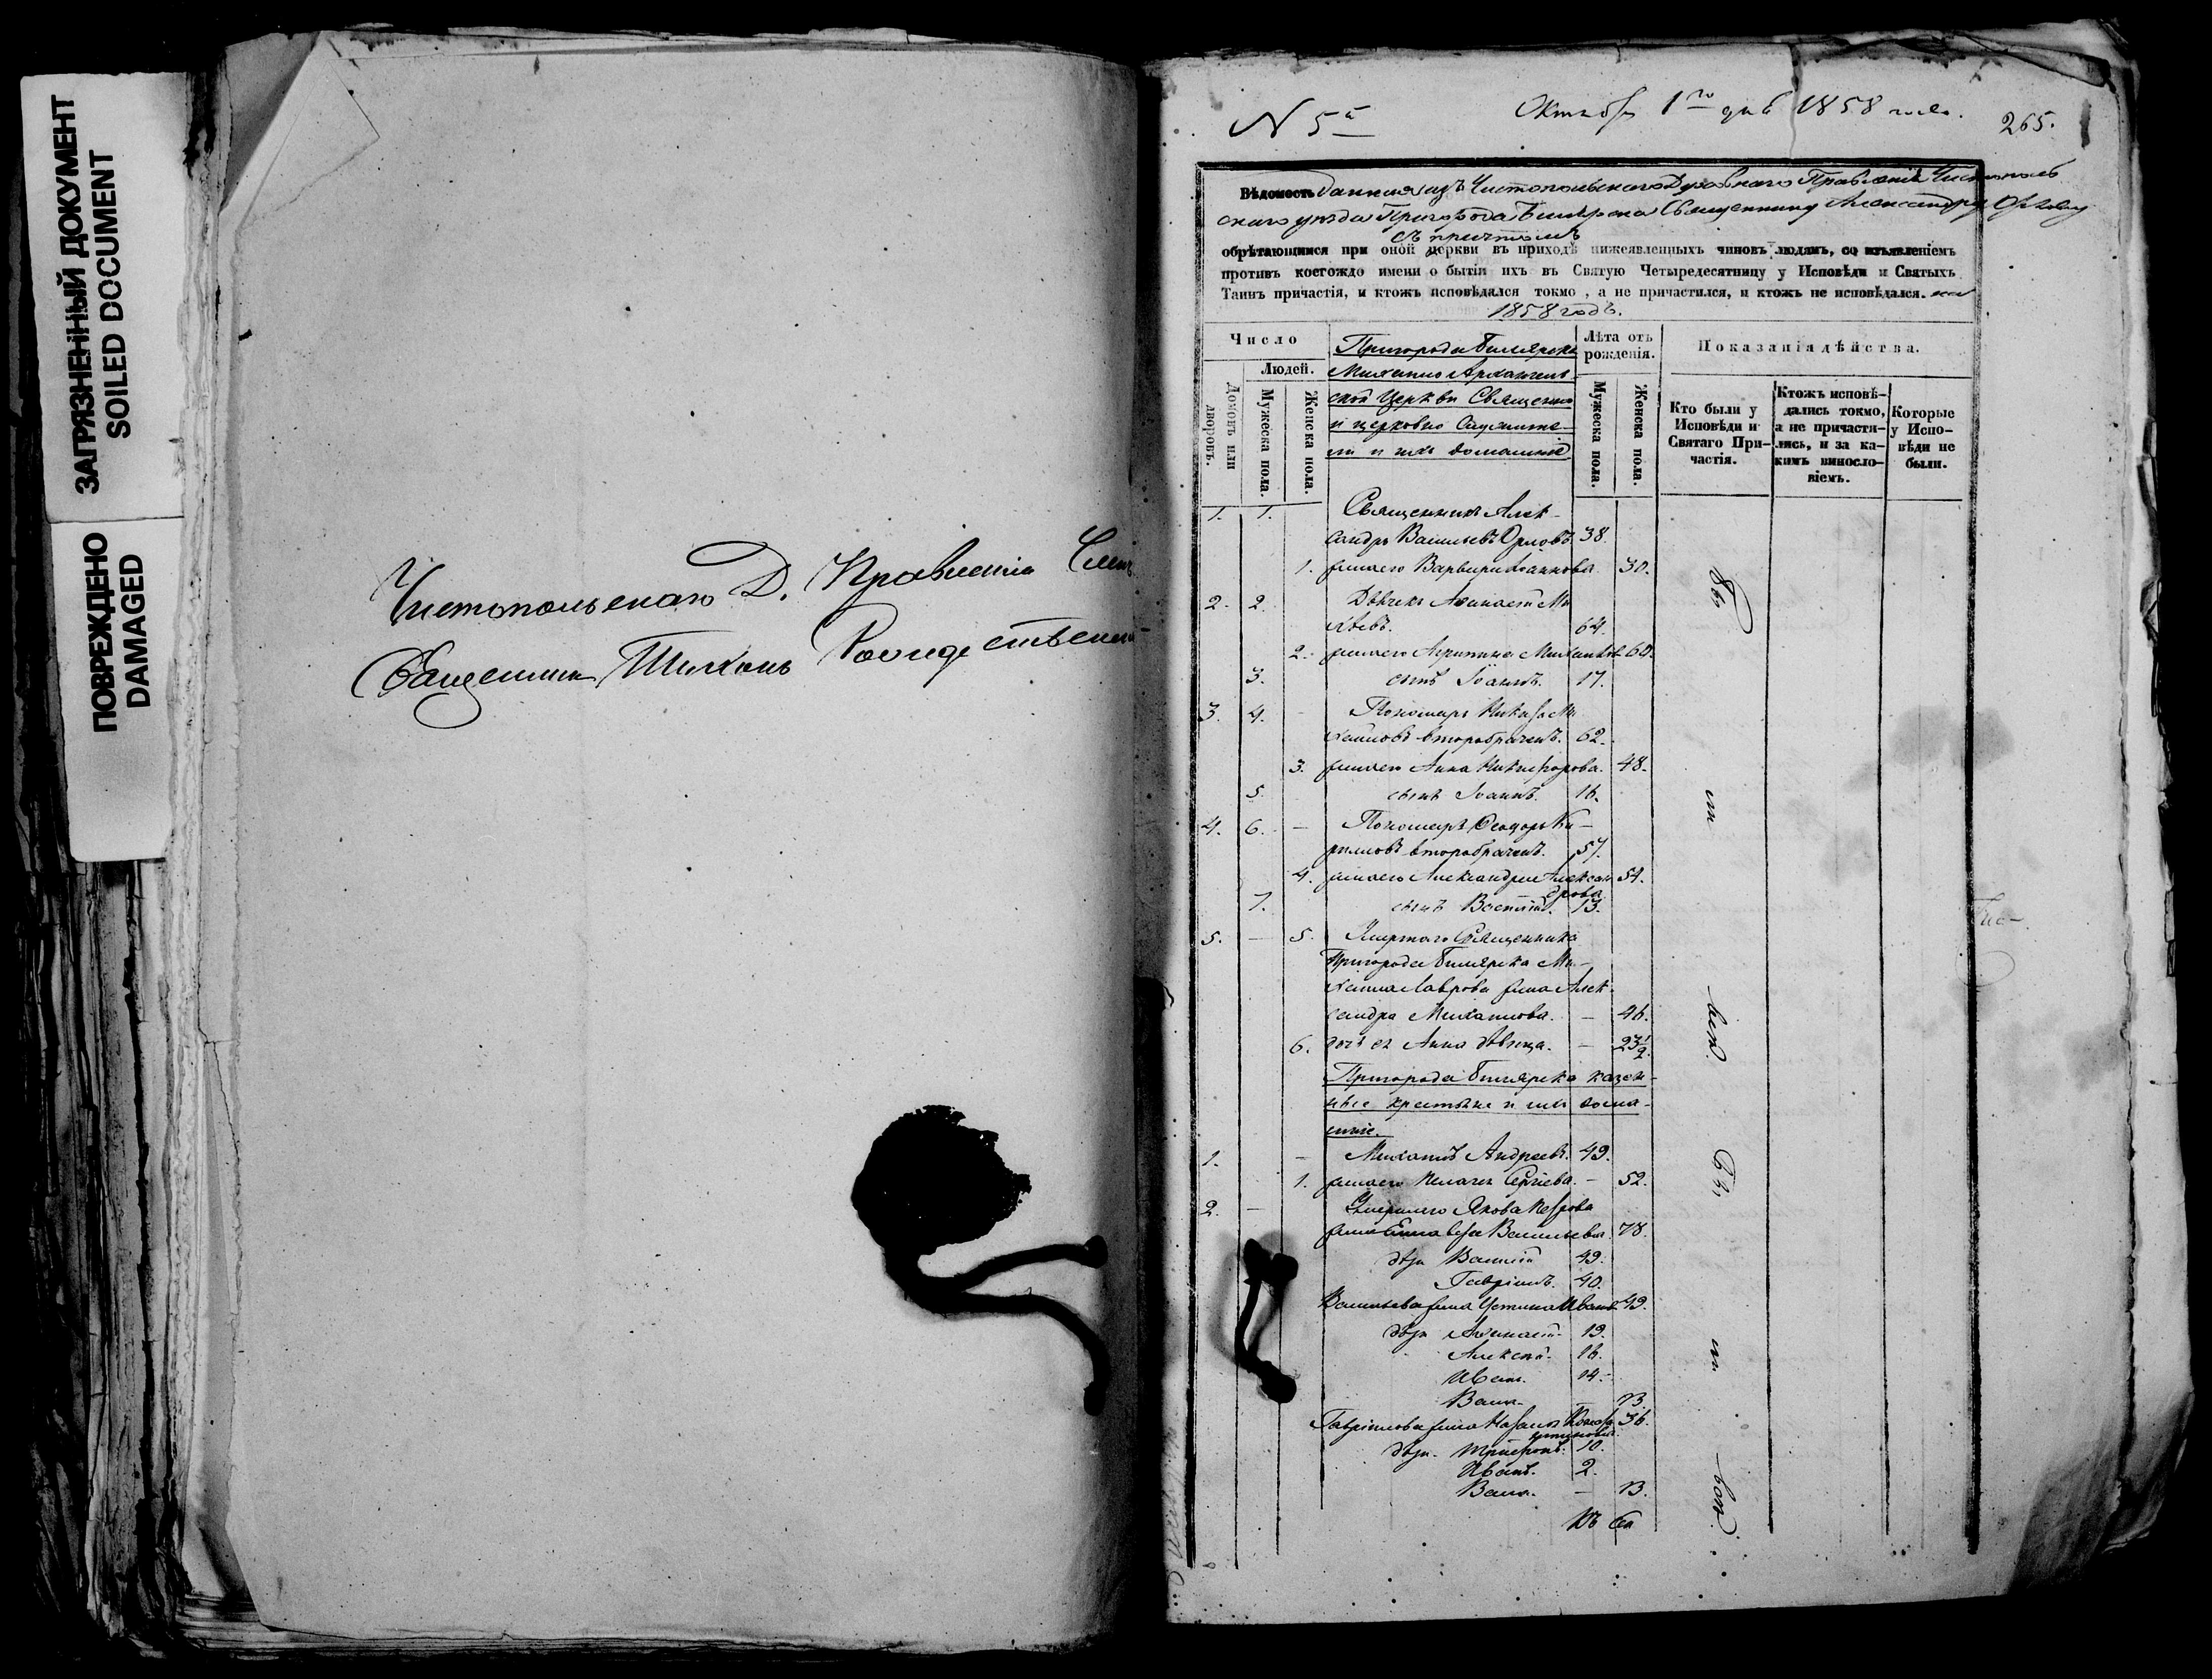 ЗАГРЯЗНЕННЫЙ ДОКУМЕНТ
SOILED DOCUMENT
ПОВРЕЖДЕНО
DAMAGED
Чистопольскаго Д. Правленія
Священникъ Тихонъ Рождественскій
N 5й
Октября 1го дня 1858 года.
265.
Вѣдомость данная изъ Чистопольскаго Духовнаго Правленія Чистополь
скаго уѣзда Пригорода Билярска Священнику Александру Орлову
съ причтомъ
обрѣтающимся при оной церкви въ приходѣ нижеявленныхъ чиновъ людямъ, со изъявленіемъ
противъ коегождо имени о бытіи ихъ въ Святую Четыредесятницу у Исповѣди и Святыхъ
Таинъ причастія, и ктожъ исповѣдался токмо, а не причастился, и ктожъ не исповѣдался. на
1858 годъ.
Число
Людей.
Домовъ или дворовъ.
Мужеска пола.
Женска пола.
Пригорода Билярска
Михаило Архангель
ской Церкви Священно
и церковно Служите-
ли и ихъ домашніе
Лѣта отъ рожденія.
Мужеска пола.
Женска пола.
Показанія дѣйства.
Кто были у Исповѣди и Святаго При-частія.
Ктожъ исповѣ-дались токмо, а не причасти-лись, и за ка-кимъ винословіемъ.
Которые у Испо-вѣди не были.
1. 1. Священникъ Алек-
сандръ Васильевъ Орловъ. 38.
1. жена его Варвара Іоаннова. 30.
2. 2. Дьячекъ Аѳанасій Ми
хѣевъ. 64.
2. жена его Агрипина Михайлов. 60.
3. сынъ Іоаннъ. 17.
3. 4. - Пономарь Никифор Ми
хайловъ второбрачный. 62.
3. жена его Анна Никифорова. 48.
5. сынъ Іоаннъ. 16.
4. 6. - Пономарь Ѳеодоръ Ки-
риловъ второбрачный. 57.
4. жена его Александра Алексан 54.
дрова
7. сынъ Василій. 13.
5. - 5. Умершаго Священника
Пригорода Билярска Ми-
хаила Лаврова жена Алек-
сандра Михайлова. - 46.
6. дочь ея Анна дѣвица. - 23 1/2.
Пригорода Билярска казен-
ные крестьяне и ихъ дома-
шніе.
1. - Михаилъ Андреевъ. 49.
1. жена его Пелагея Сергіева. - 52.
2. - Умершаго Якова Петрова
жена Елисавета Васильева. 78.
дѣти Василій 49.
Гавріилъ. 40.
Васильева жена Устинья Иванов. 49.
дѣти Аѳанасій. 19.
Алексѣй. 16.
Иванъ. 14.
13.
Гавріилова жена 36.
дѣти. Трифонъ. 10.
Иванъ. 2.
- 13.